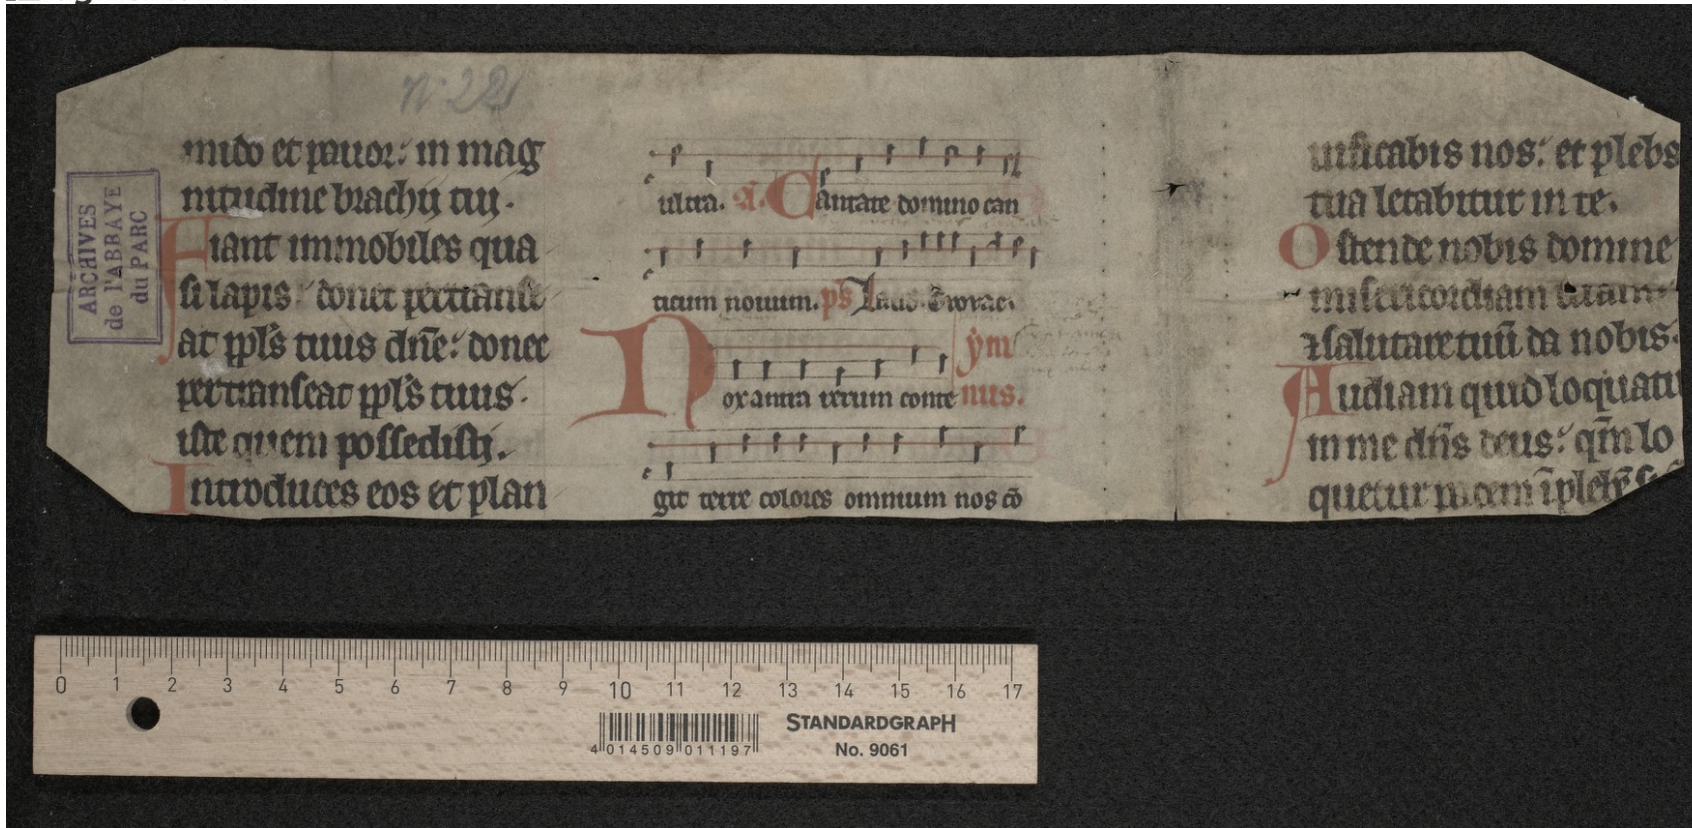 N° 22
ARCHIVES
de l'ABBAYE
du PARC
mido et pauor: in mag
nitudine brachij tui.
Fiant immobiles qua
si lapis donec pertranse
at ppl's tuus dn̄e: donec
pertranseat ppl's tuus.
iste quem possedisti.
Introduces eos et plan
ultra. A. Cantate domino can
ticum nouum. ps Laud
ym
Nox atra rerum conte nus.
git terre colores omnium nos cō
uificabis nos: et plebs
tua letabitur in te.
Ostende nobis domine
misericordiam tuam
⁊ salutare tuū da nobis.
Audiam quid loquatu
in me dn̄s deus: qm̄ lo
quetur pacem ī plebē
0 1 2 3 4 5 6 7 8 9 10 11 12 13 14 15 16 17
STANDARDGRAPH
No. 9061
4 014509 011197